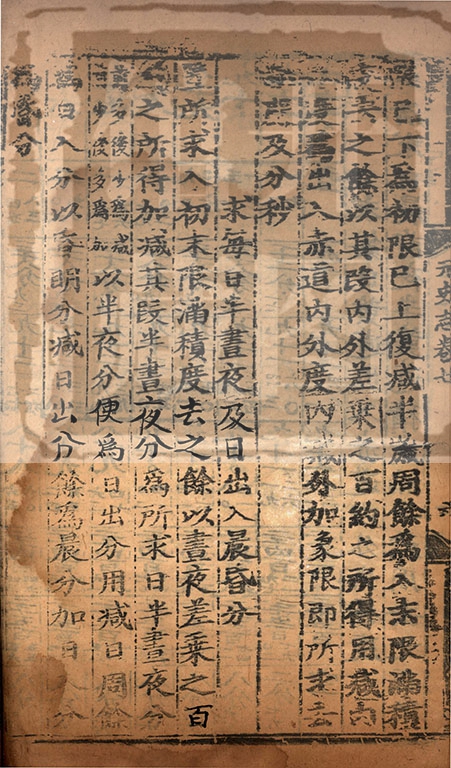 元史志卷七
限已下為初限已上復减半歲周餘為入末限滿積
度去之餘以其段內外差乗之百約之所得用减其
度為出入赤道內外度內减外加象限即所求去
極度及分秒
求每日半晝夜及日出入晨昏分
置所求入初末限滿積度去之餘以晝夜差乗之百
約之所得加减其段半晝夜分為所求日半晝夜分
前多後少為减
前少後多為加
以半夜分便為日出分用减日周餘
為日入分以昏明分减日出分餘為晨分加日入分
為昏分